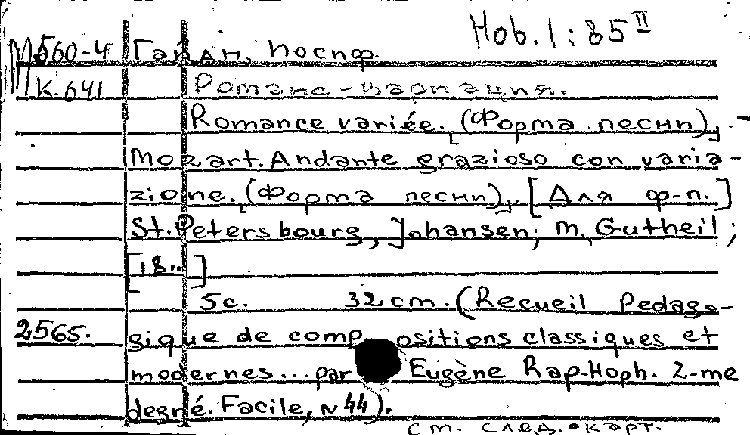 Hob. I: 85 II
М560-4 Гайдн, Иосиф.
К.641 Романс-вариация.
Romance variée. (Форма песни),
Mozart. Andante grazioso con varia-
zione. (Форма песни), [Для ф-п.]
St. Petersbourg, Johansen; M, Gutheil;
[18..]
5с. 32 cm. (Recueil Pedago-
2565. gique de compositions classiques et
modernes... par Eugène Rap-Hoph. 2-me
degré. Facile, N44).
см. след. карт.